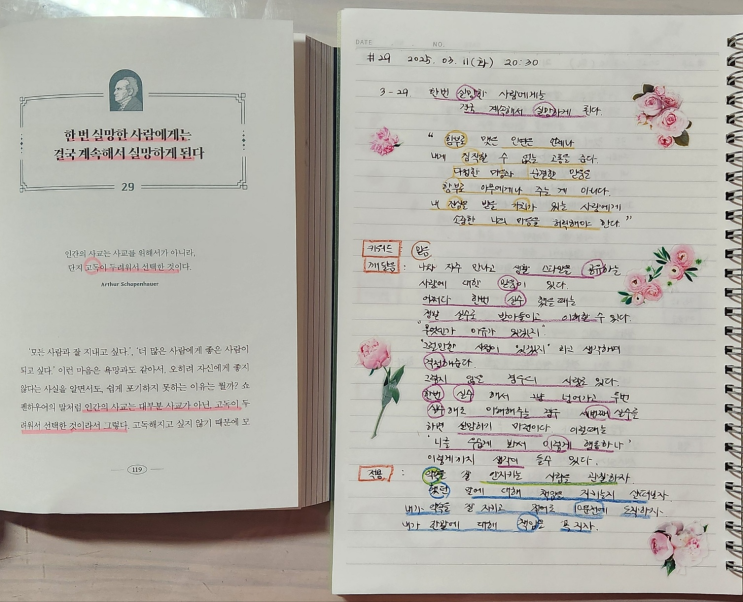 한 번 실망한 사람에게는
결국 계속해서 실망하게 된다
29
인간의 사교는 사교를 위해서가 아니라,
단지 고독이 두려워서 선택한 것이다.
Arthur Schopenhauer
'모든 사람과 잘 지내고 싶다', '더 많은 사람에게 좋은 사람이
되고 싶다' 이런 마음은 욕망과도 같아서, 오히려 자신에게 좋지
않다는 사실을 알면서도, 쉽게 포기하지 못하는 이유는 뭘까? 쇼
펜하우어의 말처럼 인간의 사교는 대부분 사교가 아닌, 고독이 두
려워서 선택한 것이라서 그렇다. 고독해지고 싶지 않기 때문에 모
119
DATE NO.
#29 2025. 03. 11(화) 20:30
3-29 한번 실망한 사람에게는
결국 계속해서 실망하게 된다
" 함부로 맺은 인연은 언제나
내게 짐작할 수 없는 고통을 준다.
다정한 마음과 순결한 믿음은
함부로 아무에게나 주는 게 아니다.
내 진심을 받을 가치가 있는 사람에게
소중한 나의 마음을 허락해야 한다 "
키워드 : 믿음
깨달음 : 나와 자주 만나고 생활 스타일을 공유하는
사람에 대한 믿음이 있다.
어쩌다 한번 실수 했을 때는
정말 실수로 받아들이고 이해할 수 있다.
"무엇인가 이유가 있겠지"
"그럴만한 사정이 있겠지" 라고 생각하며
걱정해준다.
그렇지 않은 경우의 사람도 있다.
한번 실수 해서 그냥 넘어가고 두번
실수해도 이해해주는 경우 세번째 실수을
하면 실망하기 마련이다 이럴때는
"나를 우습게 봐서 이렇게 행동하나"
이렇게까지 생각이 들수 있다.
적용 : 약속을 잘 안지키는 사람을 관찰하자
했던 말에 대해 책임을 지키는지 살펴보자
내가 약속을 잘 지키고 적어도 10분전에 도착하자.
내가 한말에 대해 책임을 꼭 지자.